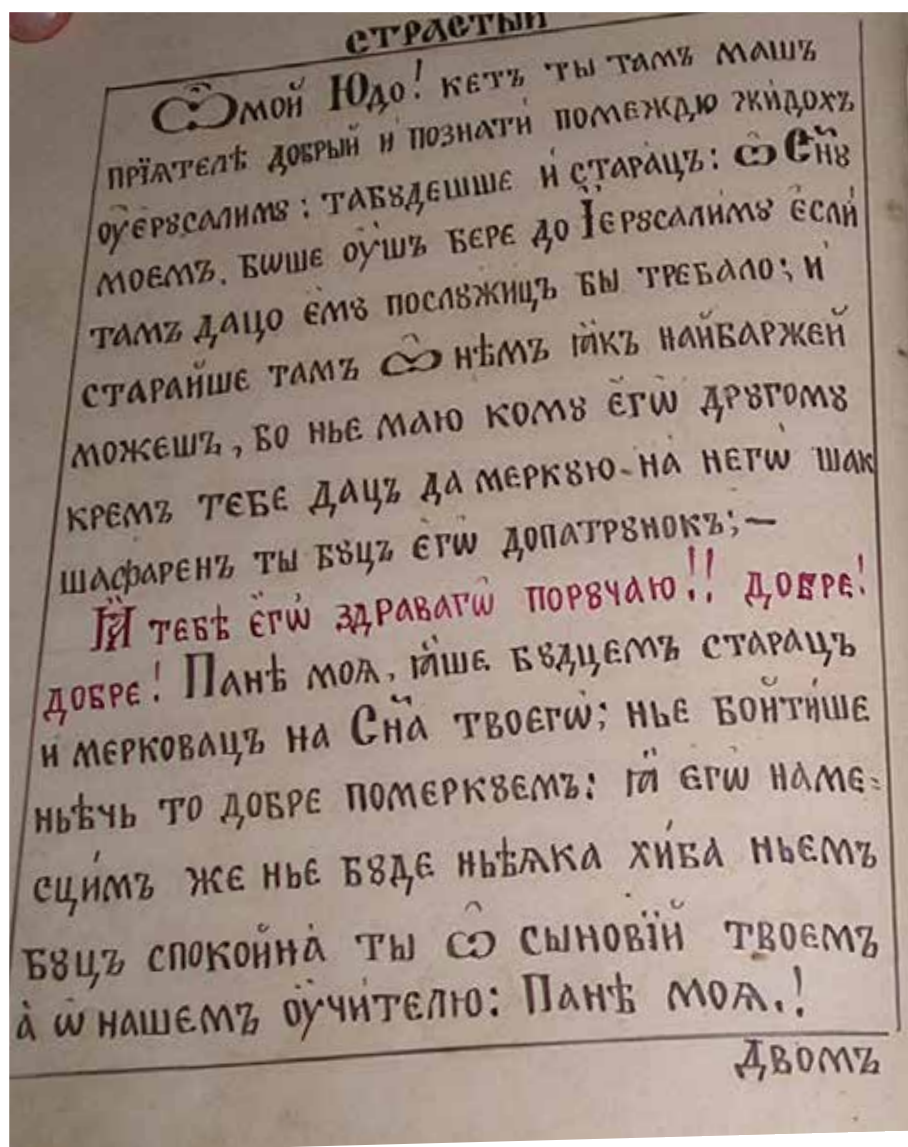 СТРАСТЫЙ
Ѽ мой Юдо! кетъ ты тамъ машъ
прїѧтелѣ добрый и познати помеждю жидохъ
оуерꙋсалимꙋ: табꙋдешше и старацъ: ѽ Сн҃ꙋ
моемъ. бѡше оушъ бере до Іерꙋсалимꙋ если
тамъ дацо емꙋ послꙋжицъ бы требало; и
старайше тамъ ѽ нѣмъ ꙗкъ найбаржей
можешъ, бо нье маю комꙋ егѡ дрꙋгомꙋ
кремъ тебе дацъ да меркꙋю на негѡ шак
шафаренъ ты бꙋцъ егѡ допатрꙋнокъ; —
Ꙗ тебѣ егѡ здравагѡ порꙋчаю!! добре!
добре! Панѣ моѧ, ꙗше бꙋдцемъ старацъ
и мерковацъ на Сн҃а твоегѡ; нье бойтише
ньѣчь то добре померкꙋемъ: ꙗ егѡ наме=
сцимъ же нье бꙋде ньѣѧка хиба ньемъ
бꙋцъ спокойна ты ѽ сыновїй твоемъ
а ѡ нашемъ оучителю: Панѣ моѧ.!
Двомъ